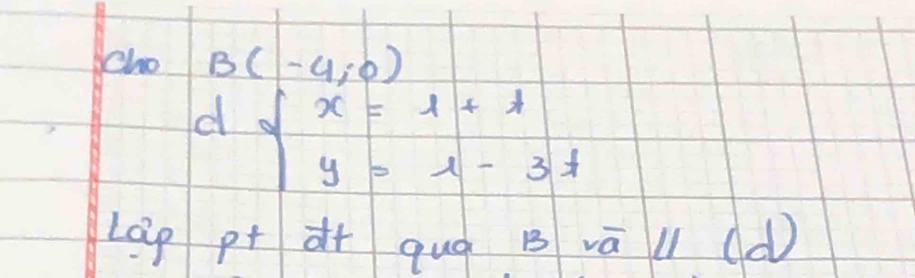 Cho B(-4;0)
d { x = 1 + t
y = 1 - 3t
Lập pt đt qua B và // (d)